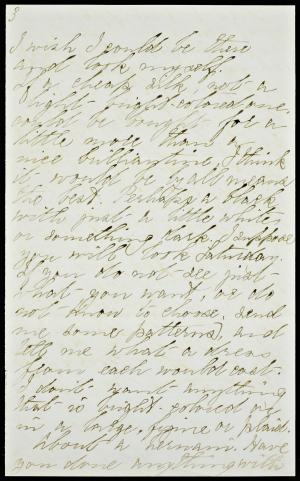 3
I wish I could be there
and look myself.
If a cheap silk, not a
light bright-colored one,
could be bought for a
little more than a
nice brilliantine, I think
it would be by all means
the best. Perhaps a black
with just a little white,
or something dark. I suppose
you will look Saturday.
If you do not see just
what you want, or do
not know to choose, send
me some patterns, and
tell me what a dress
from each would cost.
I don't want anything
that is bright-colored or
in a large figure or plaid.
About a hernani. Have
you done anything with